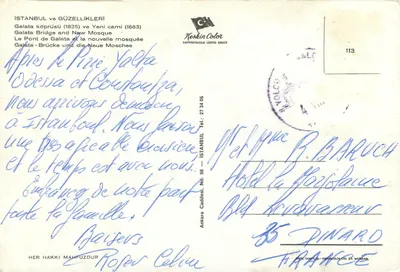 İSTANBUL ve GÜZELLİKLERİ
Galata köprüsü (1825) ve Yeni cami (1663)
Galata Bridge and New Mosque
Le Pont de Galata et la nouvelle mosquée
Galata - Brücke und die Neue Moschee
Keskin Color
113
Après le Pirée, Yalta
Odessa et Constantza,
nous arrivons demain
à Istanboul. Nous faisons
une magnifique croisière
et le temps est avec nous.
Embrassez de notre part
toute la famille.
Baisers
Roger
Ankara Caddesi, No. 98 — İSTANBUL Tel.: 27 24 06
Mr et Mme R. BARUCH
Hôtel la
Bld
35 DINARD
FRANCE
HER HAKKI MAHFUZDUR